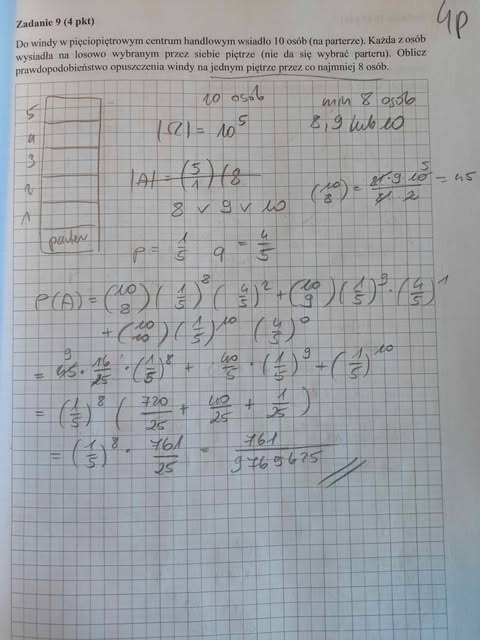 Zadanie 9 (4 pkt)
4p
Do windy w pięciopiętrowym centrum handlowym wsiadło 10 osób (na parterze). Każda z osób
wysiadła na losowo wybranym przez siebie piętrze (nie da się wybrać parteru). Oblicz
prawdopodobieństwo opuszczenia windy na jednym piętrze przez co najmniej 8 osób.
5
4
3
2
1
parter
10 osób
min 8 osób
|Ω| = 10^5
8, 9 lub 10
|A| = (5 1) (8
(10 8) = 8! · 9 · 10^5 / 8! · 2 = 45
8 v 9 v 10
p = 1/5 q = 4/5
P(A) = (10 8) (1/5)^8 (4/5)^2 + (10 9) (1/5)^9 · (4/5)^1
+ (10 10) (1/5)^10 (4/5)^0
= 45^9 · 16/25 · (1/5)^8 + 40/5 · (1/5)^9 + (1/5)^10
= (1/5)^8 ( 720/25 + 40/25 + 1/25 )
= (1/5)^8 · 761/25 = 761/9765625